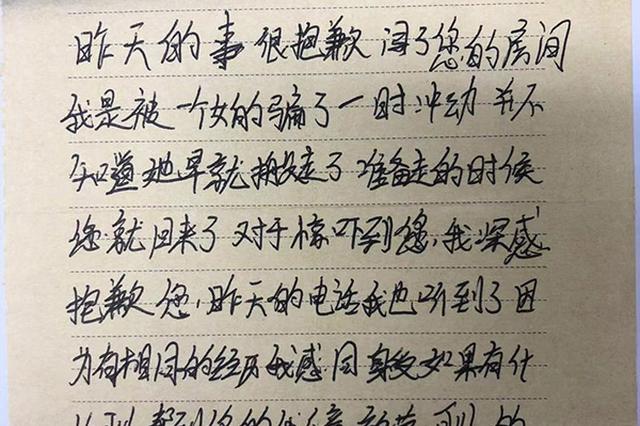 昨天的事很抱歉闯了您的房间
我是被一个女的骗了一时冲动并不
知道她早就搬走了准备走的时候
您就回来了对于惊吓到您,我深感
抱歉您,昨天的电话我也听到了因
为有相同的经历我感同身受如果有什